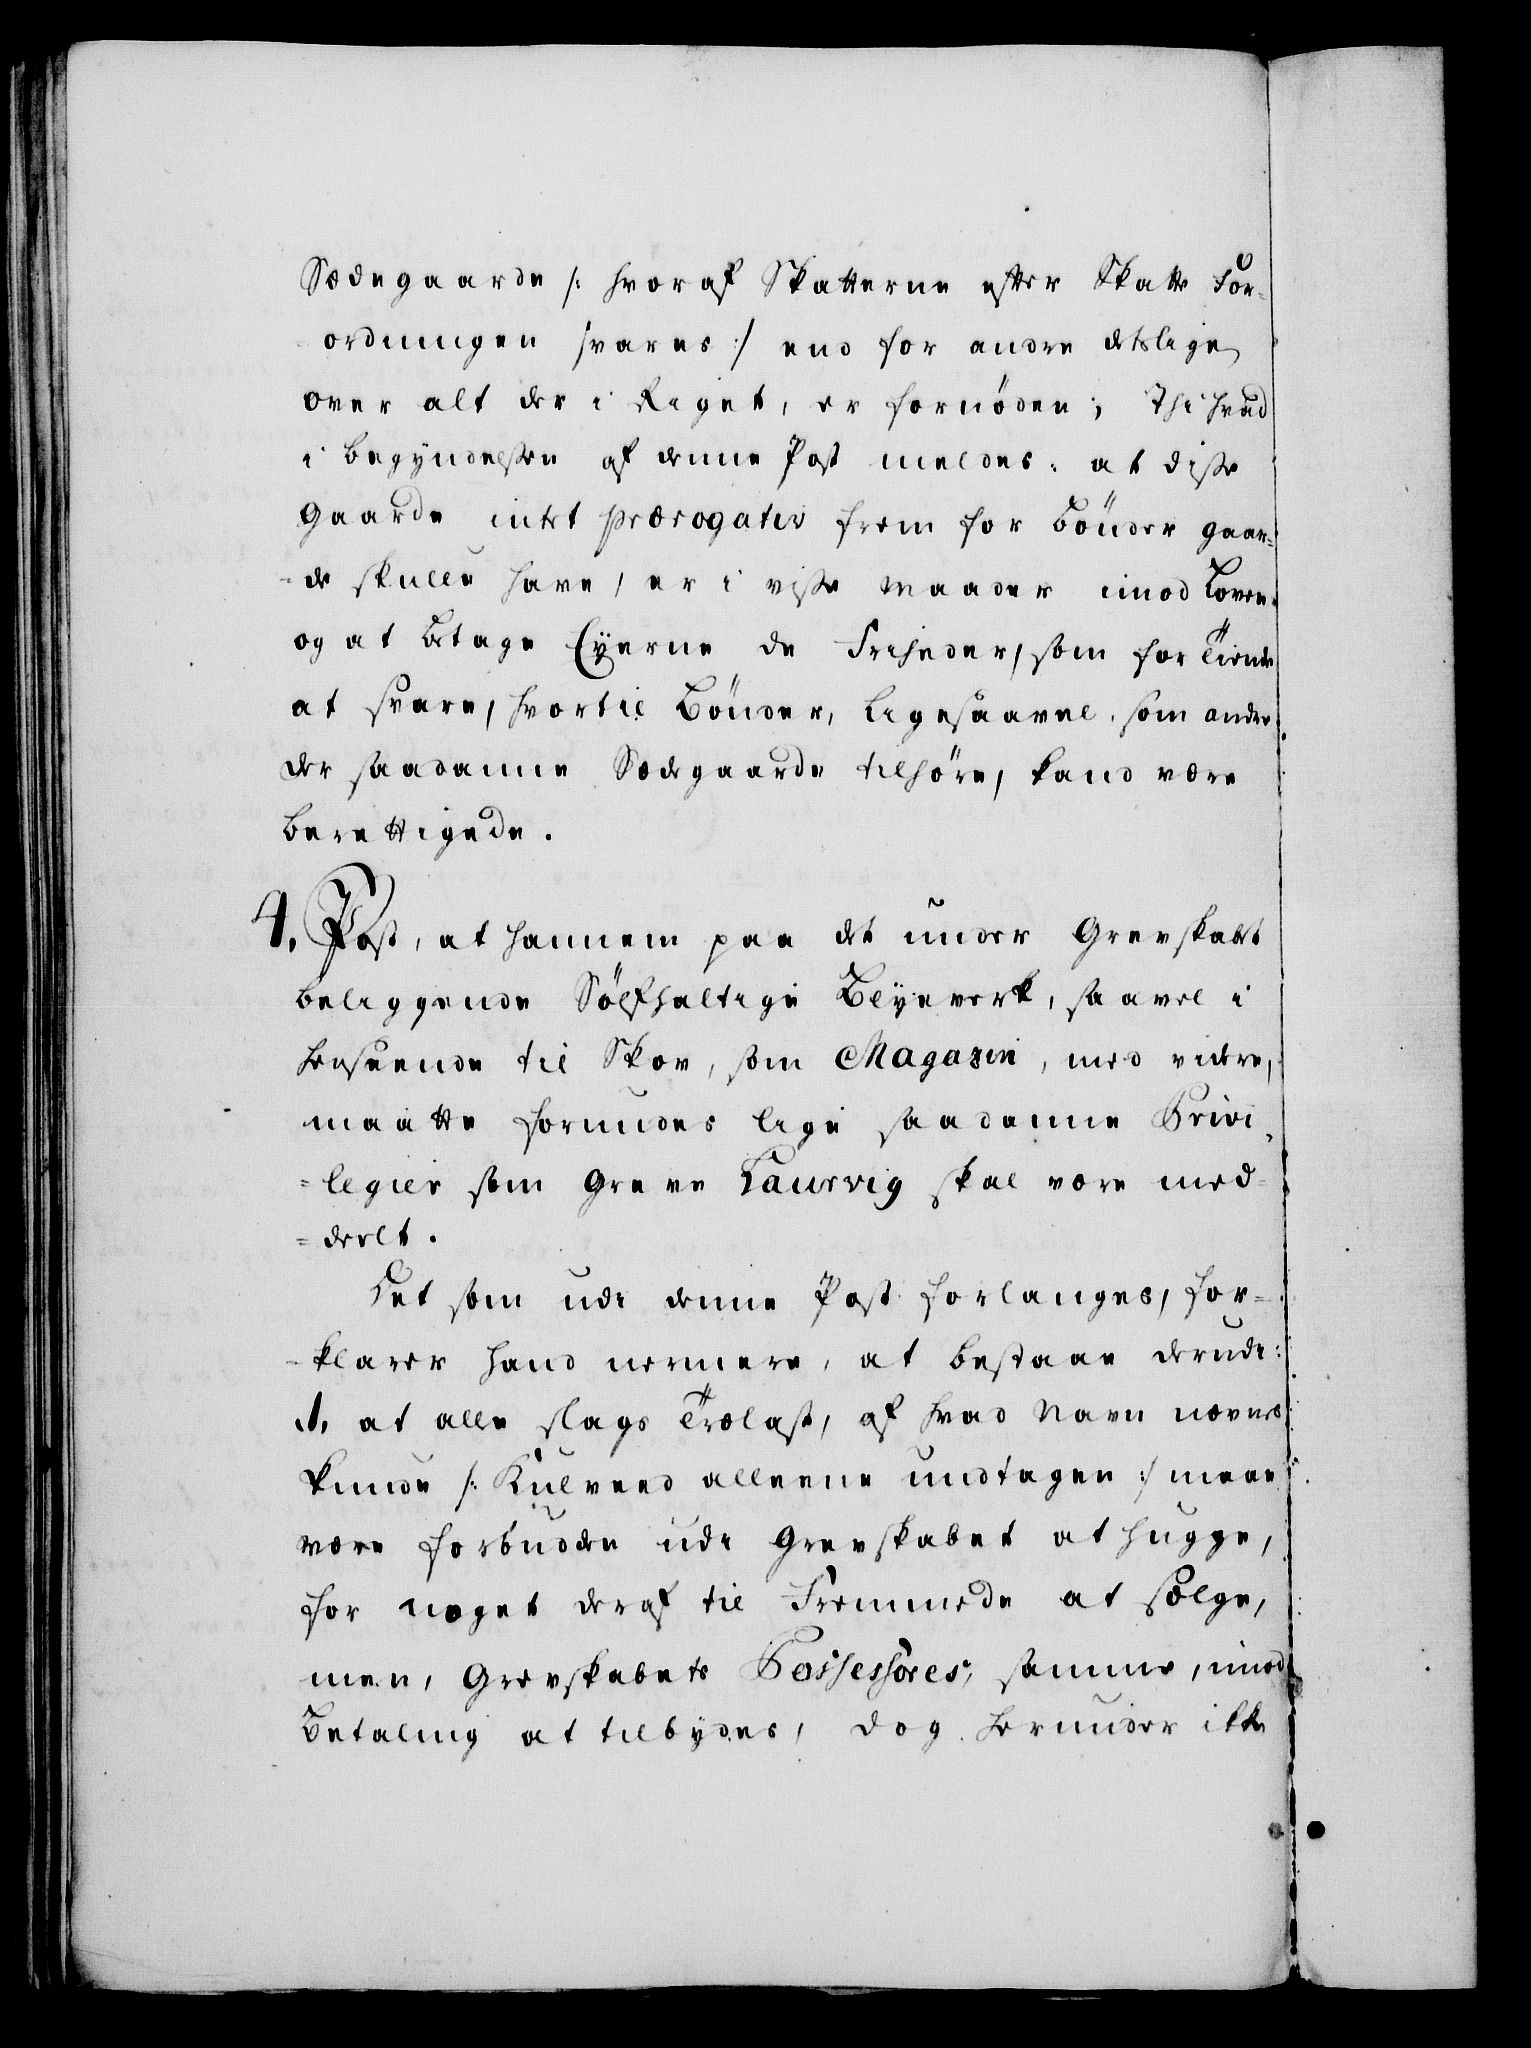 Sædegaarde /: hvoraf Skatterne efter Skatte For-
ordningen svares :/ end for andre detslige
over alt der i Riget, er fornöden; Thi hvad
i begyndelssen af denne Post meldes: at disse
Gaarde intet prærogativ frem for Bönder gaar=
=de skulle have, er i visse maader imod Loven
og at betage Eyerne de Friheder, som for Tiende
at svare, hvortil Bönder, ligesaavel som andre
der saadanne Sædegaarde tilhöre, kand være
berettigede.
4. Post, at hannem paa det under Grevskabet
beliggende Sölfholtige Blyeverk, saavel i
henseende til Skov, som Magazin, med videre,
maatte forundes lige saadanne Privi
=legier som Greve Laurvig skal være med=
=deelt.
Det som udi denne Post forlanges, for=
=klarer hand nermere, at bestaae derudi:
1. at alle slags Trælast, af hvad Navn nævnes
kunde /: Kulveed alleene undtagen :/ maae
være forbuden udi Grevskabet at hugge,
for noget deraf til Fremmede at sælge,
men, Grevskabets Possessores, samme, imod
Betaling at tilbydes, dog herunder ikke